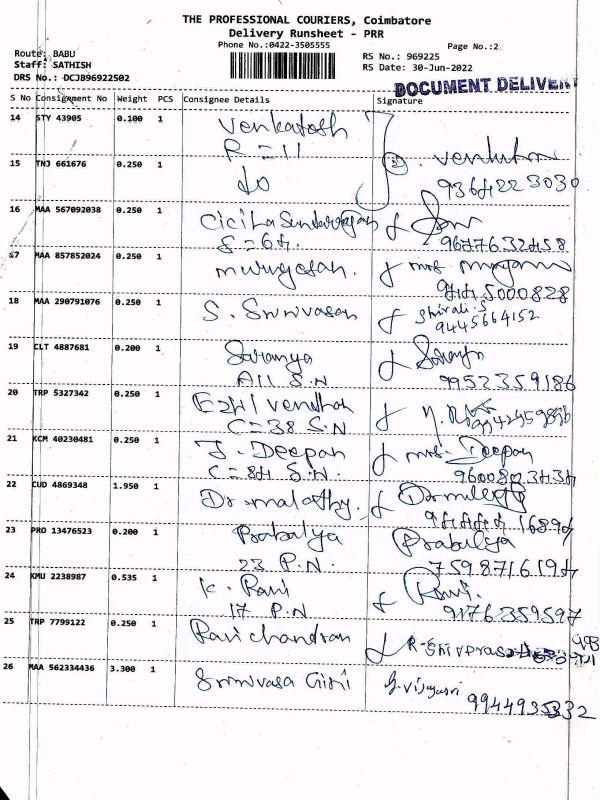 THE PROFESSIONAL COURIERS, Coimbatore
Delivery Runsheet - PRR
Phone No.:0422-3505555
Page No.:2
Route: BABU
Staff: SATHISH
DRS No.: DCJB96922502
RS No.: 969225
RS Date: 30-Jun-2022
DOCUMENT DELIVERY
S No Consignment No Weight PCS Consignee Details Signature
14 STY 43905 0.100 1 Venkatesh
R = 11
15 TNJ 661676 0.250 1 do
9364223030
16 MAA 567092038 0.250 1 Cicilia Sundarrajan
S = 64.
9677632458
17 MAA 857852024 0.250 1 murugesan. mrs.
9445000828
18 MAA 290791076 0.250 1 S. Srinivasan Shivali.S
9445664152
19 CLT 4887681 0.200 1 Saranya
A11 S.N
9952359186
20 TRP 5327342 0.250 1 Ezhil vendhan
C = 38 S.N
21 KCM 40230481 0.250 1 J. Deepan mrs. Deepan
C = 84 S.N.
22 CUD 4869348 1.950 1 Dr. malathy.
23 PRO 13476523 0.200 1 Prabalya Prabalya
23 P.N.
7598716194
24 KMU 2238987 0.535 1 K. Ravi Ravi.
17 P.N
9176359597
25 TRP 7799122 0.250 1 Ravi chandran
26 MAA 562334436 3.300 1 Srinivasa Giri
9944935332